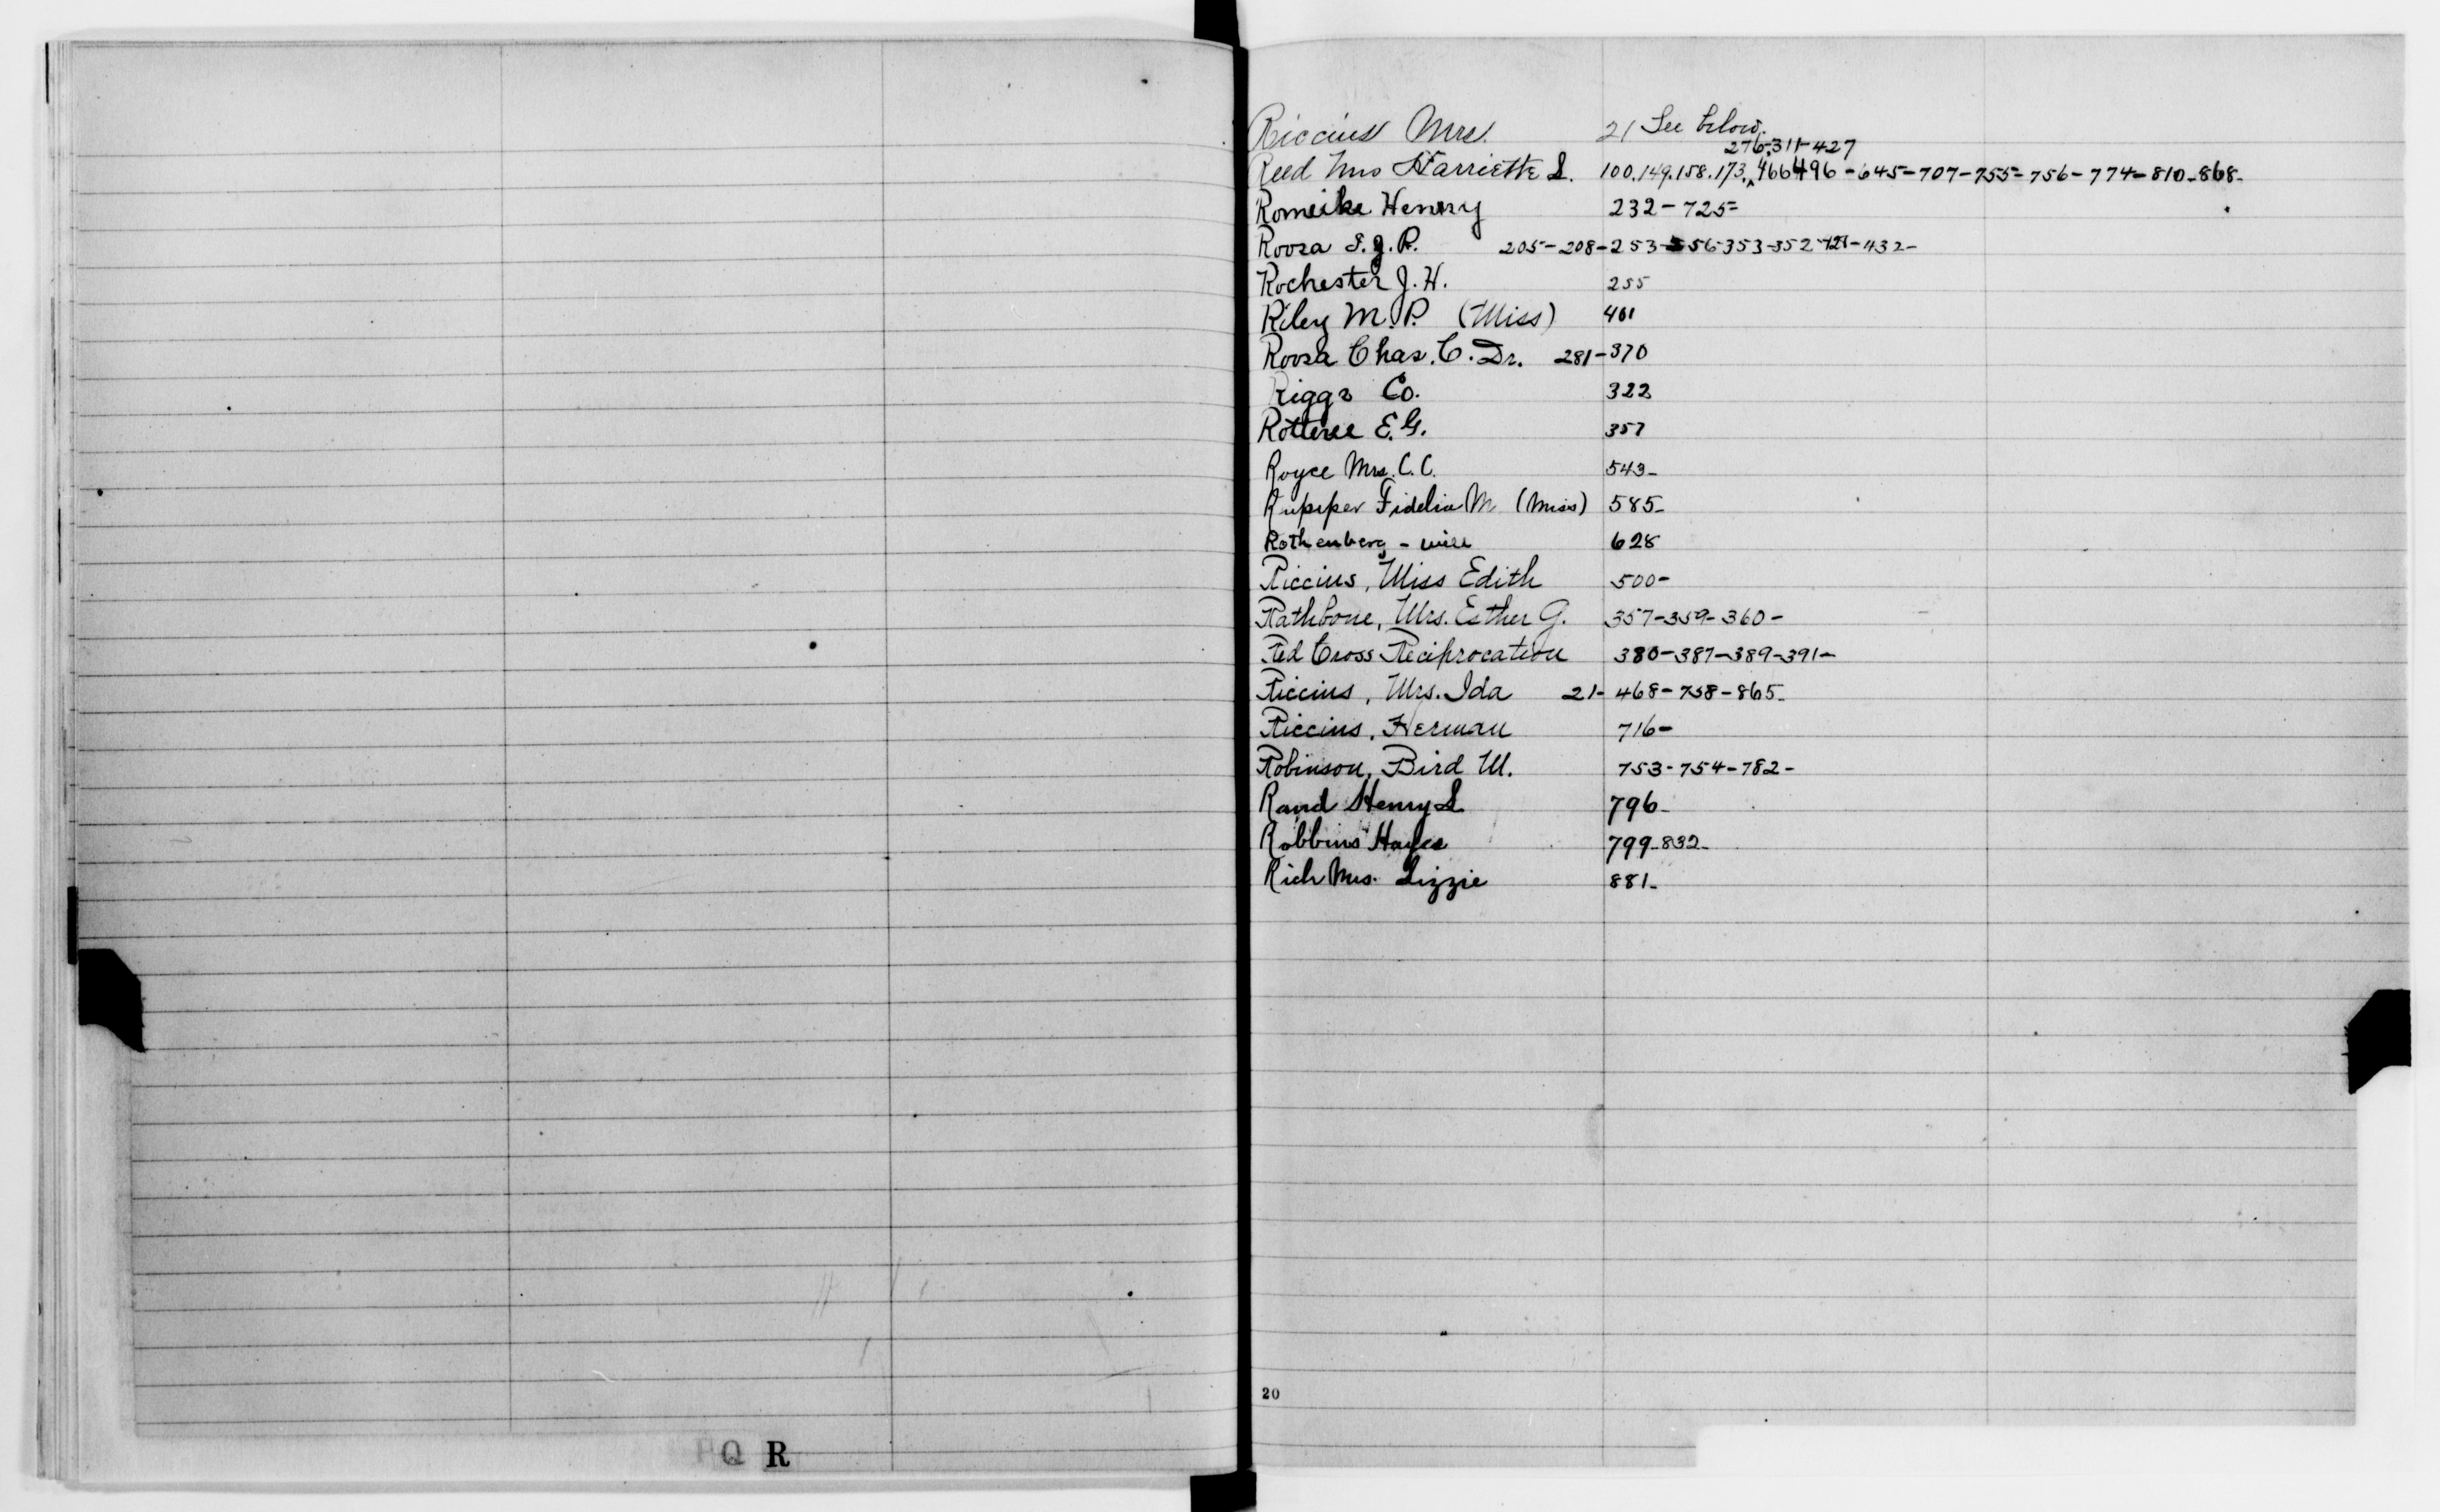 Riccius Mrs. 21 See below.
276-311-427
Reed Mrs Harriette L. 100.149.158.173.^466 496-645-707-755-756-774-810-868-
Romeike Henry 232-725-
Roosa S.J.R. 205-208-253- 353-352 -432-
Rochester J.H. 255
Riley M.P. (Miss) 401
Roosa Chas. C. Dr. 281-370
Riggs Co. 322
E.G. 357
Royce Mrs. C.C. 543-
Fidelia M (Miss) 585-
Rothenberg - will 628
Riccius, Miss Edith 500-
Rathbone, Mrs. Esther G. 357-359-360-
Red Cross Reciprocation 380-387-389-391-
Riccius, Mrs. Ida 21-468-758-865-
Riccius, Herman 716-
Robinson, Bird M. 753-754-782-
Rand Henry L 796-
Robbins Hayes 799-832-
Rich Mrs. Lizzie 881-
20
P Q R